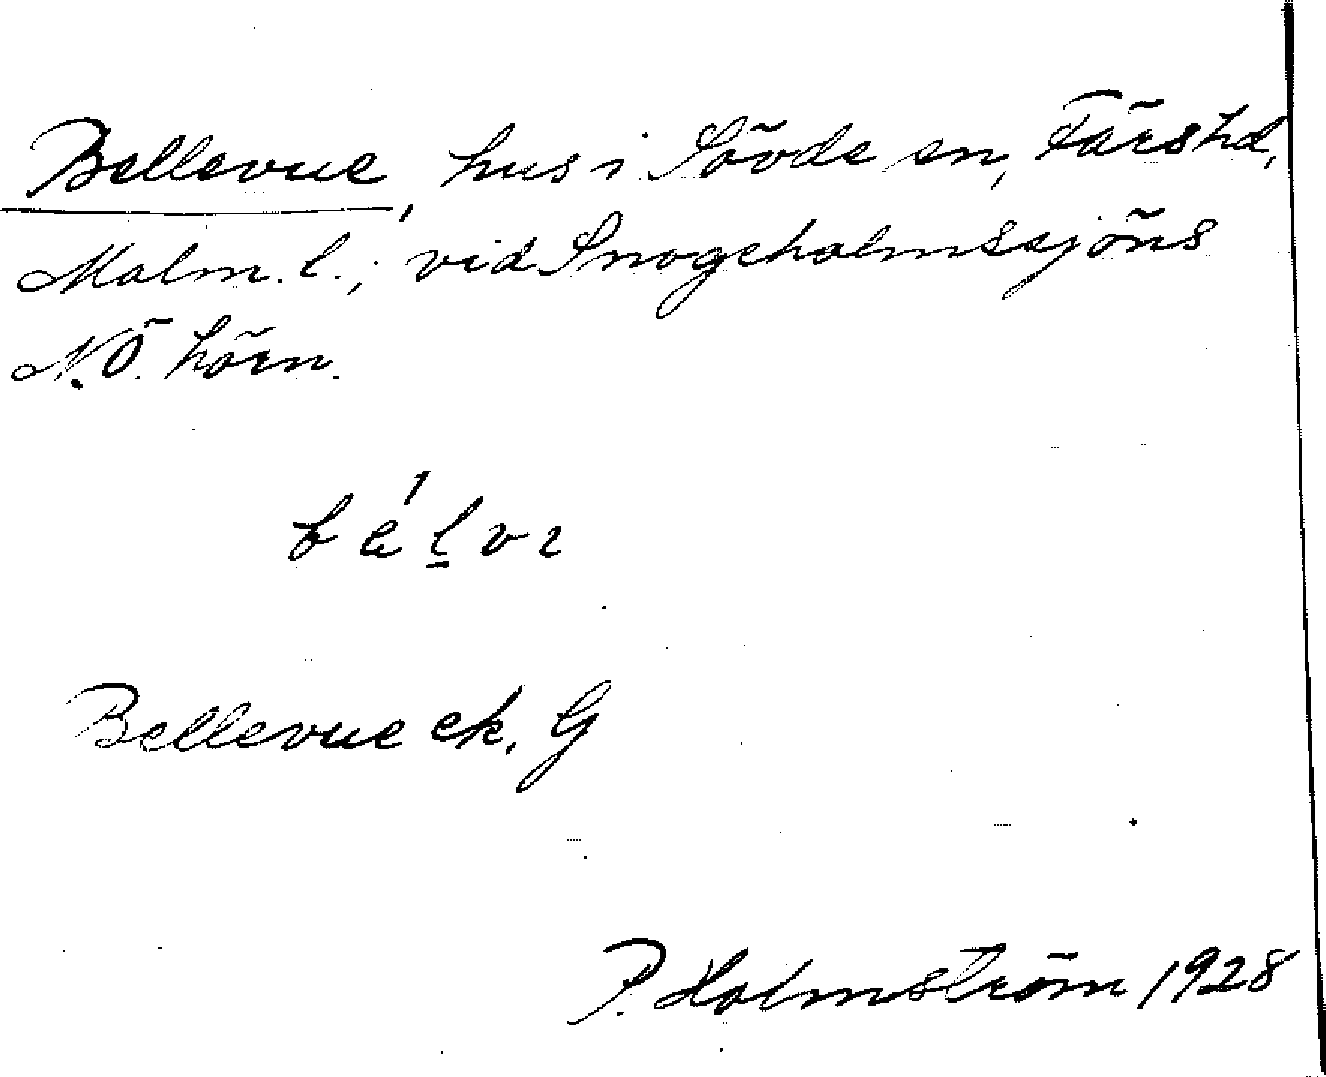 Bellevue, hus i Sövde sn, Färs hd,
Malm. l.; vid Snogeholmssjöns
N.Ö. hörn.
Bellevue ek. G
P. Holmström 1928